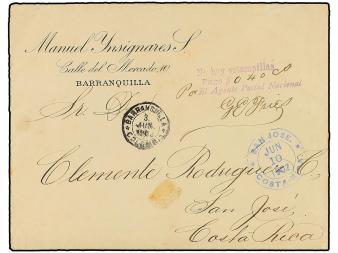 Manuel Ynsignares S.
Calle del Mercado, 10
BARRANQUILLA
No hay estampillas
Pagó $ 0.40
El Agente Postal Nacional
Sr. Dn.
BARRANQUILLA
3
JUN
COLOMBIA
SAN JOSE
JUN
10
1902
COSTA
Clemente Rodriguez C.
San José
Costa Rica